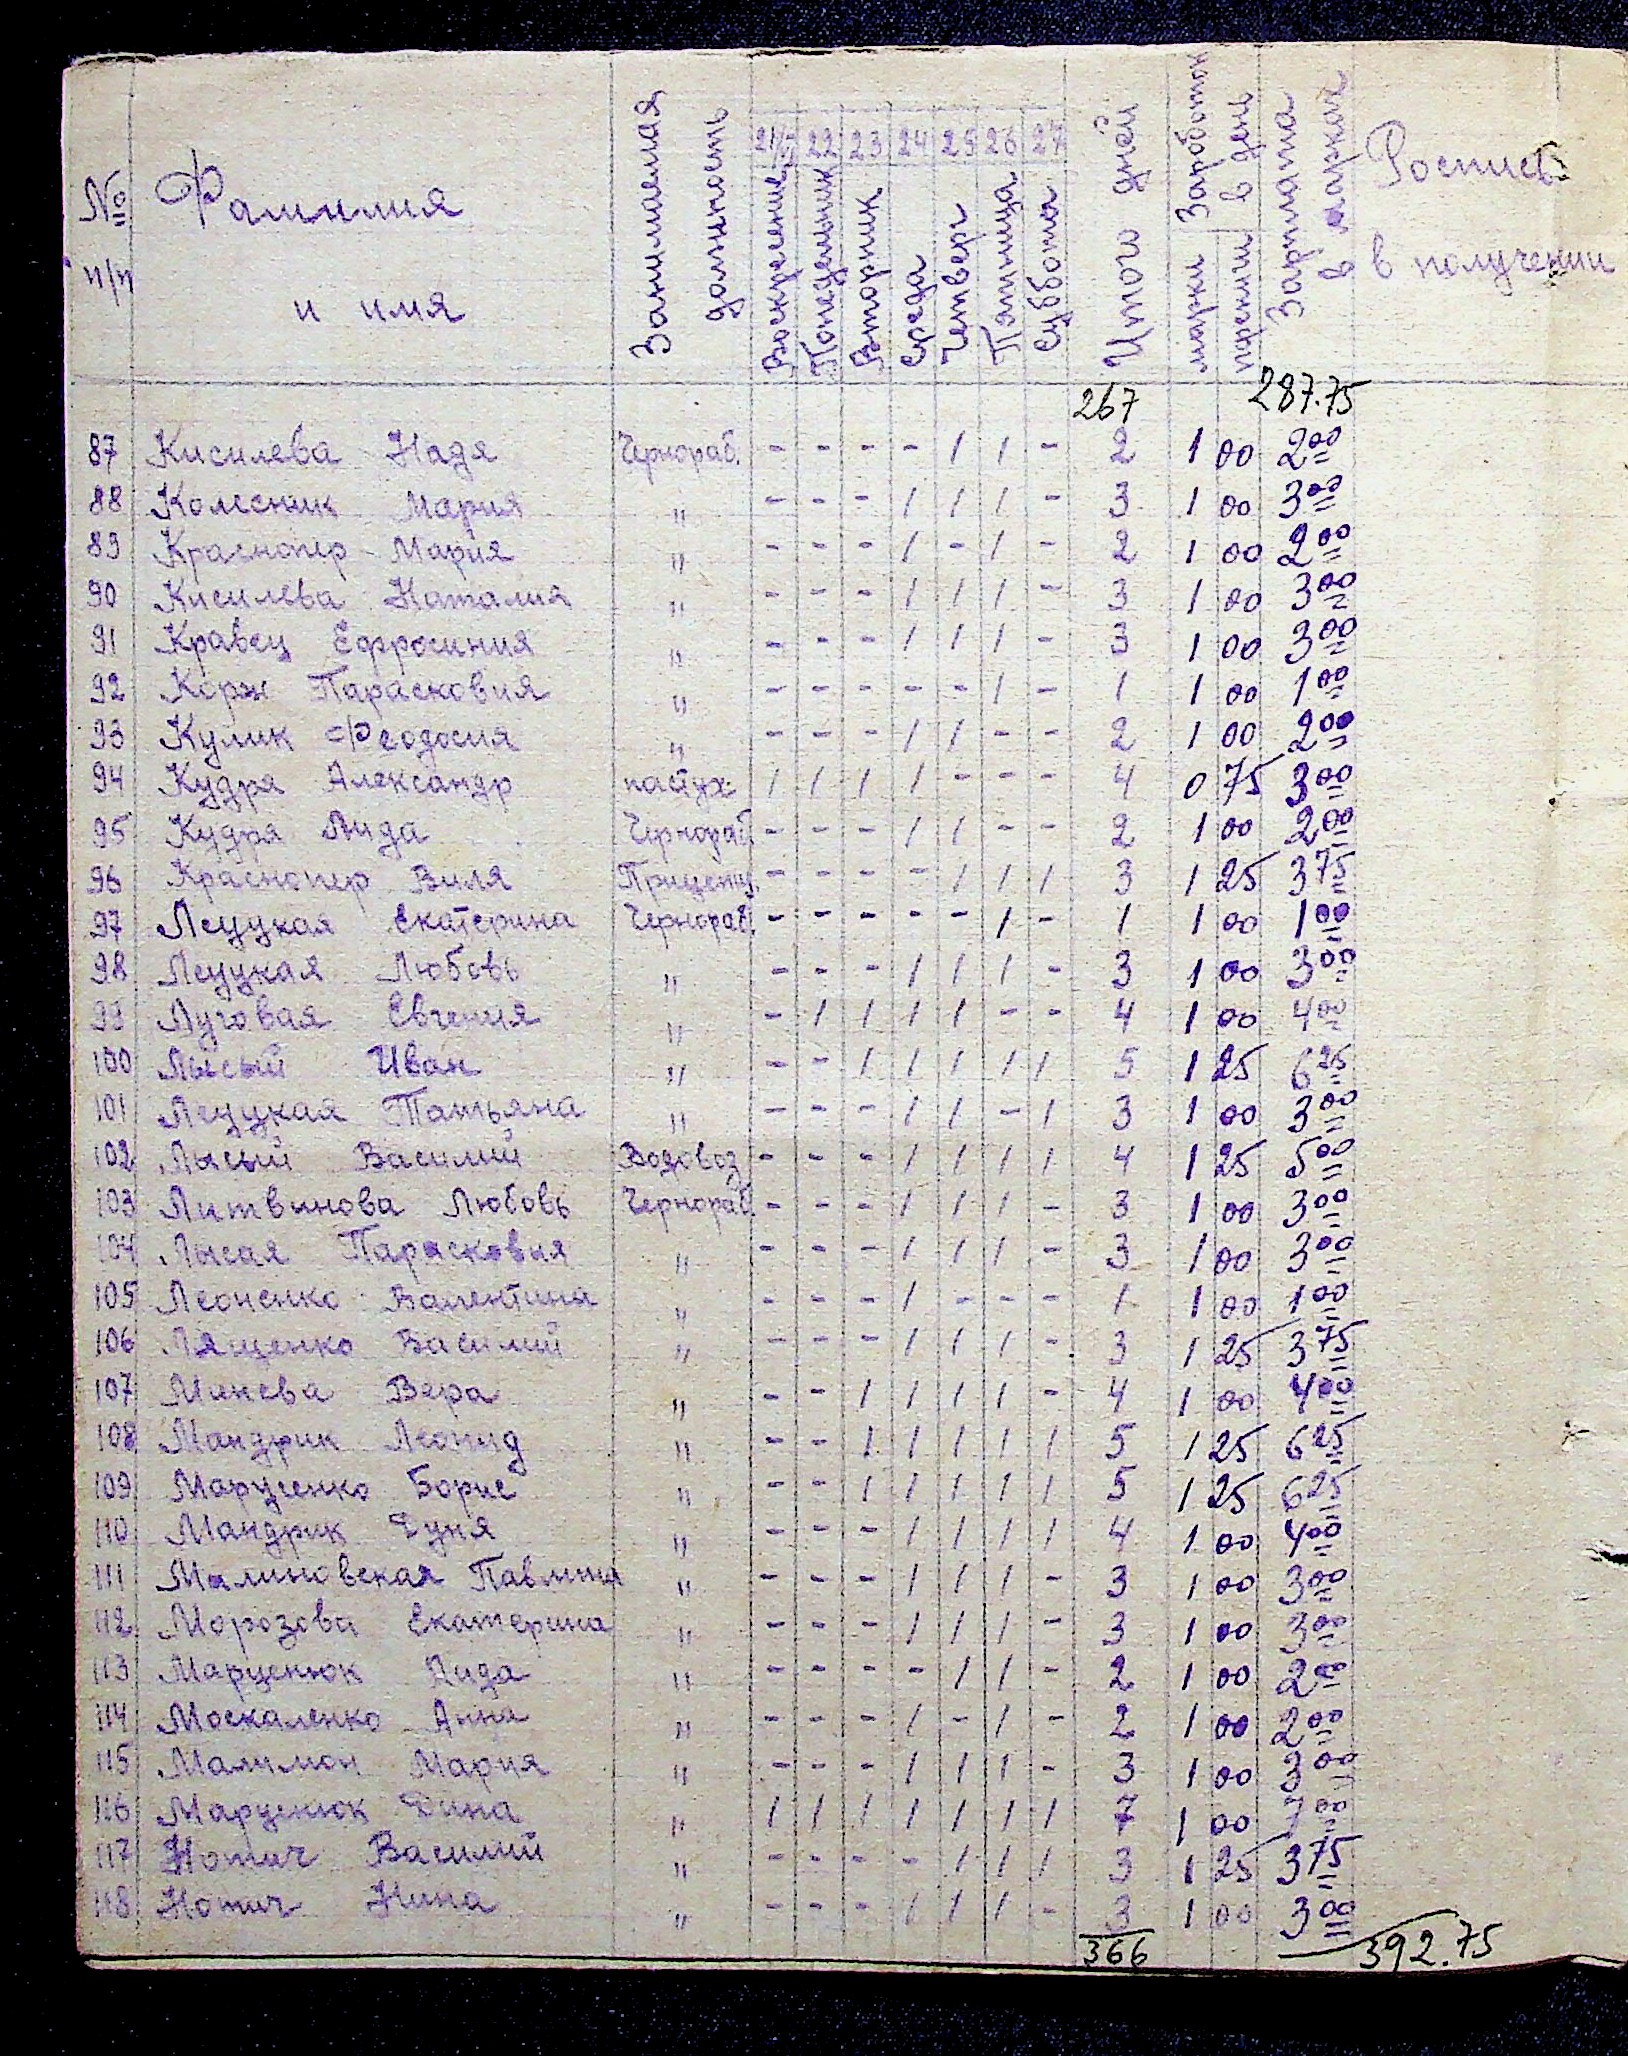 № п/п Фамилия и имя Занимаемая должность 21/V 22 23 24 25 26 27 Итого дней Заработок в день Зарплата в марках Роспись в получении
Воскресение Понедельник Вторник Среда Четверг Пятница Суббота марки пфениги
267 287.75
87 Кисилева Надя Чернораб. - - - - / / - 2 1 00 2 00
88 Колесник Мария " - - - / / / - 3 1 00 3 00
89 Краснопер Мария " - - - / - / - 2 1 00 2 00
90 Кисилева Наталия " - - - / / / - 3 1 00 3 00
91 Кравец Ефросиния " - - - / / / - 3 1 00 3 00
92 Корж Парасковия " - - - - - / - 1 1 00 1 00
93 Кулик Феодосия " - - - / / - - 2 1 00 2 00
94 Кудря Александр пастух / / / / - - - 4 0 75 3 00
95 Кудря Лида Чернораб - - - / / - - 2 1 00 2 00
96 Краснопер Виля Прицепщ. - - - - / / / 3 1 25 3 75
97 Лецукая Екатерина Чернораб. - - - - - / - 1 1 00 1 00
98 Лецукая Любовь " - - - / / / - 3 1 00 3 00
99 Луговая Евгения " - / / / / - - 4 1 00 4 00
100 Лысый Иван " - - / / / / / 5 1 25 6 25
101 Лецукая Татьяна " - - - / / - / 3 1 00 3 00
102 Лысый Василий Водовоз - - - / / / / 4 1 25 5 00
103 Литвинова Любовь Чернораб. - - - / / / - 3 1 00 3 00
104 Лысая Парасковия " - - - / / / - 3 1 00 3 00
105 Леоненко Валентина " - - - / - - - 1 1 00 1 00
106 Лященко Василий " - - - / / / - 3 1 25 3 75
107 Минева Вера " - - / / / / - 4 1 00 4 00
108 Мандрик Леонид " - - / / / / / 5 1 25 6 25
109 Марусенко Борис " - - / / / / / 5 1 25 6 25
110 Мандрик Дуня " - - - / / / / 4 1 00 4 00
111 Малиновская Павлина " - - - / / / - 3 1 00 3 00
112 Морозова Екатерина " - - - / / / - 3 1 00 3 00
113 Марценюк Лида " - - - - / / - 2 1 00 2 00
114 Москаленко Анна " - - - / - / - 2 1 00 2 00
115 Малимон Мария " - - - / / / - 3 1 00 3 00
116 Марценюк Дина " / / / / / / / 7 1 00 7 00
117 Нотич Василий " - - - - / / / 3 1 25 3 75
118 Нотич Нина " - - - / / / - 3 1 00 3 00
366 392.75